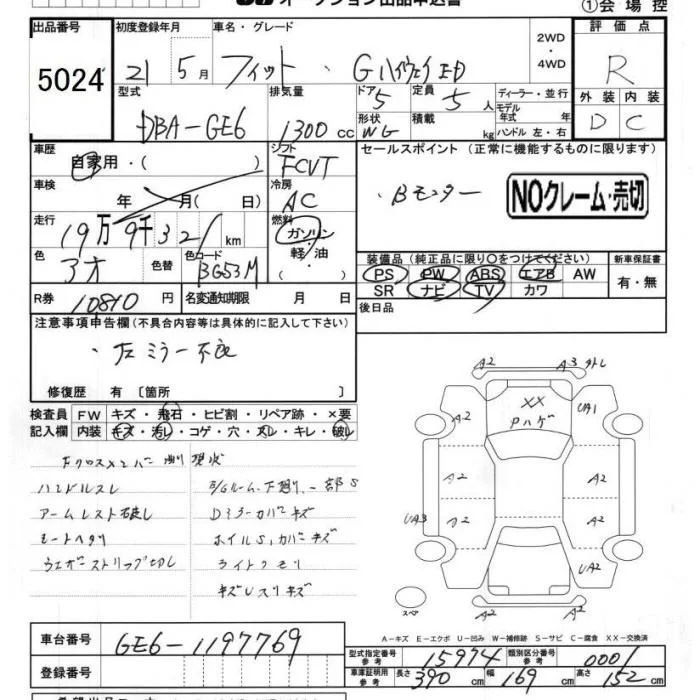 オークション出品申込書
①会場控
出品番号 5024
初度登録年月 21 5月
車名・グレード フィット・Gハイウェイ ED
2WD・4WD
評価点 R
外装 D 内装 C
型式 DBA-GE6
排気量 1300cc
ドア 5 定員 5人
形状 WG 積載 kg
ディーラー・並行
モデル年式 年
ハンドル 左・右
車歴 自家用・( )
シフト FCVT
車検 年 月( 日)
冷房 AC
走行 19万9千321km
燃料 ガソリン・軽油・( )
色 3オ 色替 色コード BG53M
R券 10810円 名変通知期限 月 日
セールスポイント(正常に機能するものに限ります)
・Bモニター
NOクレーム・売切
装備品(純正品に限り○をつけてください) 新車保証書
PS PW ABS エアB AW 有・無
SR ナビ TV カワ
後日品
注意事項申告欄(不具合内容等は具体的に記入して下さい)
・左ミラー不良
修復歴 有〔箇所 〕
検査員記入欄 FW キズ・飛石・ヒビ割・リペア跡・×要
内装 キズ・汚レ・コゲ・穴・スレ・キレ・破レ
Fクロスメンバー 現状
ハンドルスレ
E/Gルーム、下廻り、一部S
アームレスト破レ
Dミラーカバーキズ
シートヘタリ
ホイルS、カバーキズ
ウエザーストリップ切レ
ライトクモリ
キズUスリキズ
A2 A3 外レ
XX
Pハゲ
A2 UA1
A2 A2
UA3 A2 A2
UA2
A2 A2
スペ
A-キズ E-エクボ U-凹み W-補修跡 S-サビ C-腐食 XX-交換済
車台番号 GE6-1197769
登録番号
型式指定番号参考 15974 類別区分番号参考 0001
車庫証明用参考 長さ 390cm 幅 169cm 高さ 152cm